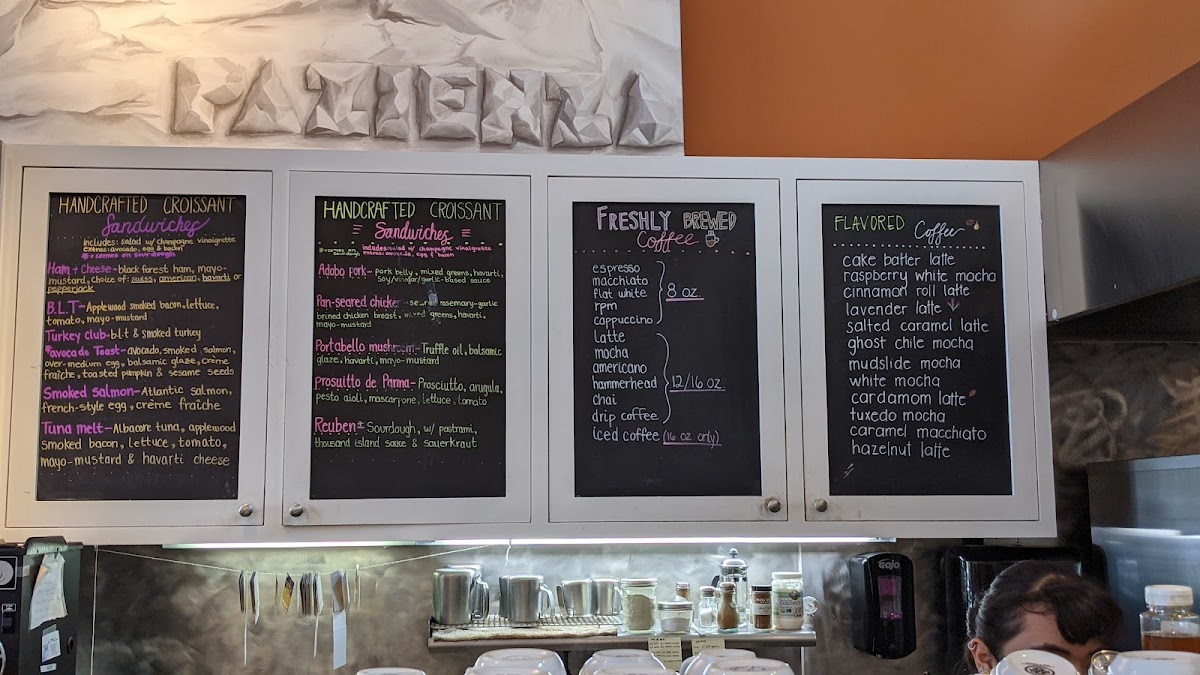 PAZIENZA
HANDCRAFTED CROISSANT
Sandwiches
includes: salad w/ champagne vinaigrette
extras: avocado, egg & bacon
* comes on sourdough
Ham + Cheese- black forest ham, mayo-
mustard, choice of: swiss, american, havarti or
pepperjack
B.L.T- Applewood smoked bacon, lettuce,
tomato, mayo-mustard
Turkey club- b.l.t & smoked turkey
*avocado Toast- avocado, smoked salmon,
over-medium egg, balsamic glaze, crème
fraîche, toasted pumpkin & sesame seeds
Smoked salmon- Atlantic salmon,
french-style egg, crème fraîche
Tuna melt- Albacore tuna, applewood
smoked bacon, lettuce, tomato,
mayo-mustard & havarti cheese
HANDCRAFTED CROISSANT
Sandwiches
* comes on sourdough
includes: salad w/ champagne vinaigrette
extras: avocado, egg & bacon
Adobo pork- pork belly, mixed greens, havarti,
soy/vinegar/garlic-based sauce
Pan-seared chicken rosemary-garlic
brined chicken breast, mixed greens, havarti,
mayo-mustard
Portabello mushroom- Truffle oil, balsamic
glaze, havarti, mayo-mustard
prosuitto de Parma- Prosciutto, arugula,
pesto aioli, mascarpone, lettuce, tomato
Reuben* Sourdough, w/ pastrami,
thousand island sauce & sauerkraut
FRESHLY BREWED
Coffee
espresso
macchiato
flat white
rpm
cappuccino
8 oz.
latte
mocha
americano
hammerhead
chai
drip coffee
12/16 oz.
iced coffee (16 oz only)
FLAVORED Coffee
cake batter latte
raspberry white mocha
cinnamon roll latte
lavender latte
salted caramel latte
ghost chile mocha
mudslide mocha
white mocha
cardamom latte
tuxedo mocha
caramel macchiato
hazelnut latte
GOJO